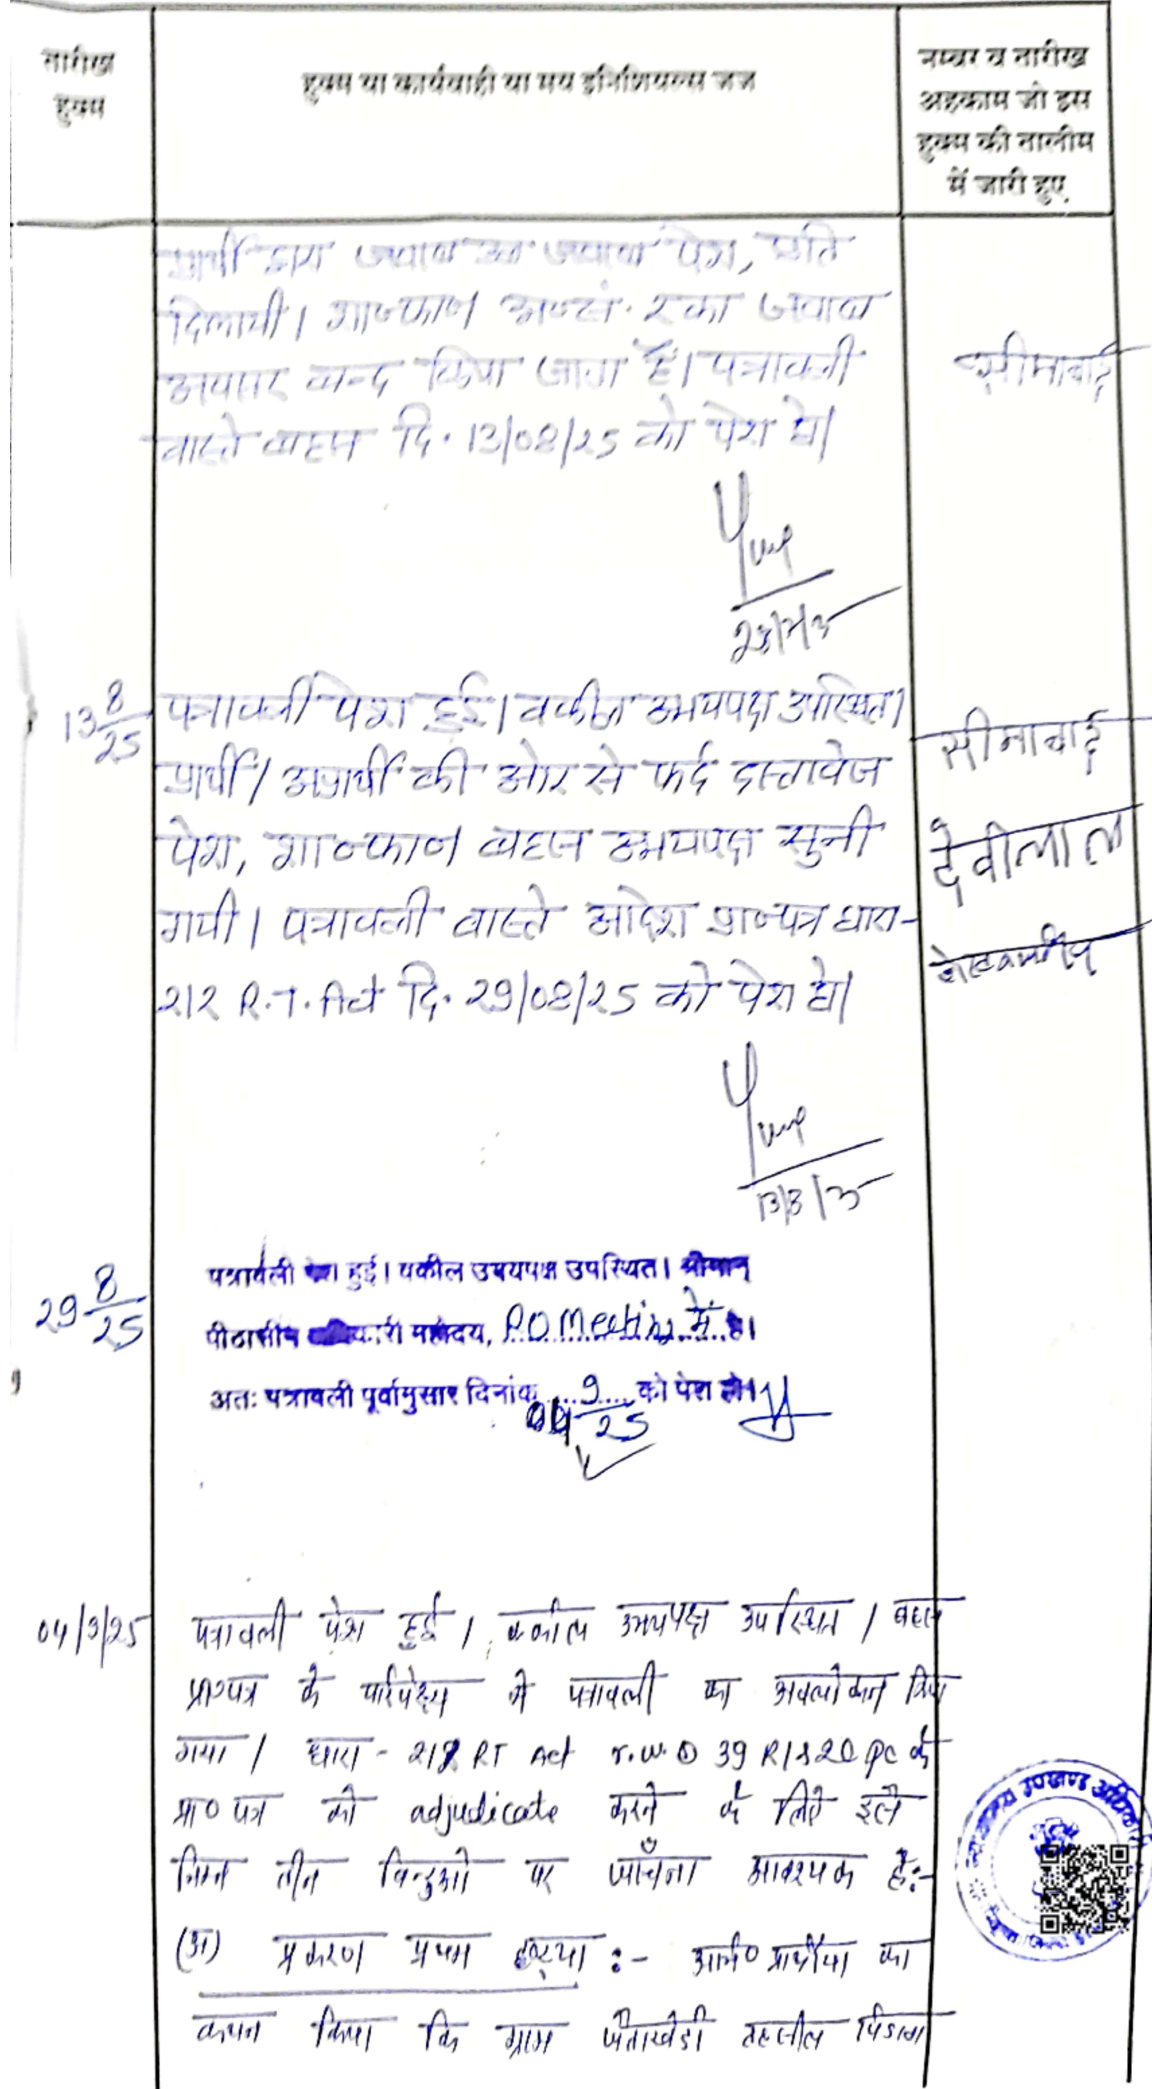 तारीख
हुक्म
हुक्म या कार्यवाही या मय इनिशियल्स जज
नम्बर व तारीख
अहकाम जो इस
हुक्म की तालीम
में जारी हुए
प्रार्थी द्वारा जवाब उल जवाब पेश, प्रति
दिलायी। शा०फा० अ०सं. 2 का जवाब
अवसर बन्द किया जाता है। पत्रावली
वास्ते बहस दि. 13/08/25 को पेश हो।
सीमाबाई
23/7/25
13 8/25
पत्रावली पेश हुई। वकील उभयपक्ष उपस्थित।
प्रार्थी/अप्रार्थी की ओर से फर्द दस्तावेज
पेश, शा०फा० बहस उभयपक्ष सुनी
गयी। पत्रावली वास्ते आदेश प्रा०पत्र धारा-
212 R.T. Act दि. 29/08/25 को पेश हो।
सीमाबाई
देवीलाल
13/8/25
29 8/25
पत्रावली पेश हुई। वकील उभयपक्ष उपस्थित। श्रीमान्
पीठासीन अधिकारी महोदय, P.O Meeting में है।
अतः पत्रावली पूर्वानुसार दिनांक 04 9/25 को पेश हो।
04/9/25
पत्रावली पेश हुई। वकील उभयपक्ष उपस्थित। बहस
प्रा०पत्र के परिपेक्ष्य में पत्रावली का अवलोकन किया
गया। धारा - 212 RT Act r.w. O 39 R 1 & 2 CPC के
प्रा० पत्र को adjudicate करने के लिये इसे
निम्न तीन बिन्दुओ पर जाँचना आवश्यक है:-
(अ) प्रकरण प्रथम दृष्टया :- प्रार्थीया का
कथन किया कि ग्राम जेताखेडी तहसील पिडावा
न्यायालय उपखण्ड अधिकारी